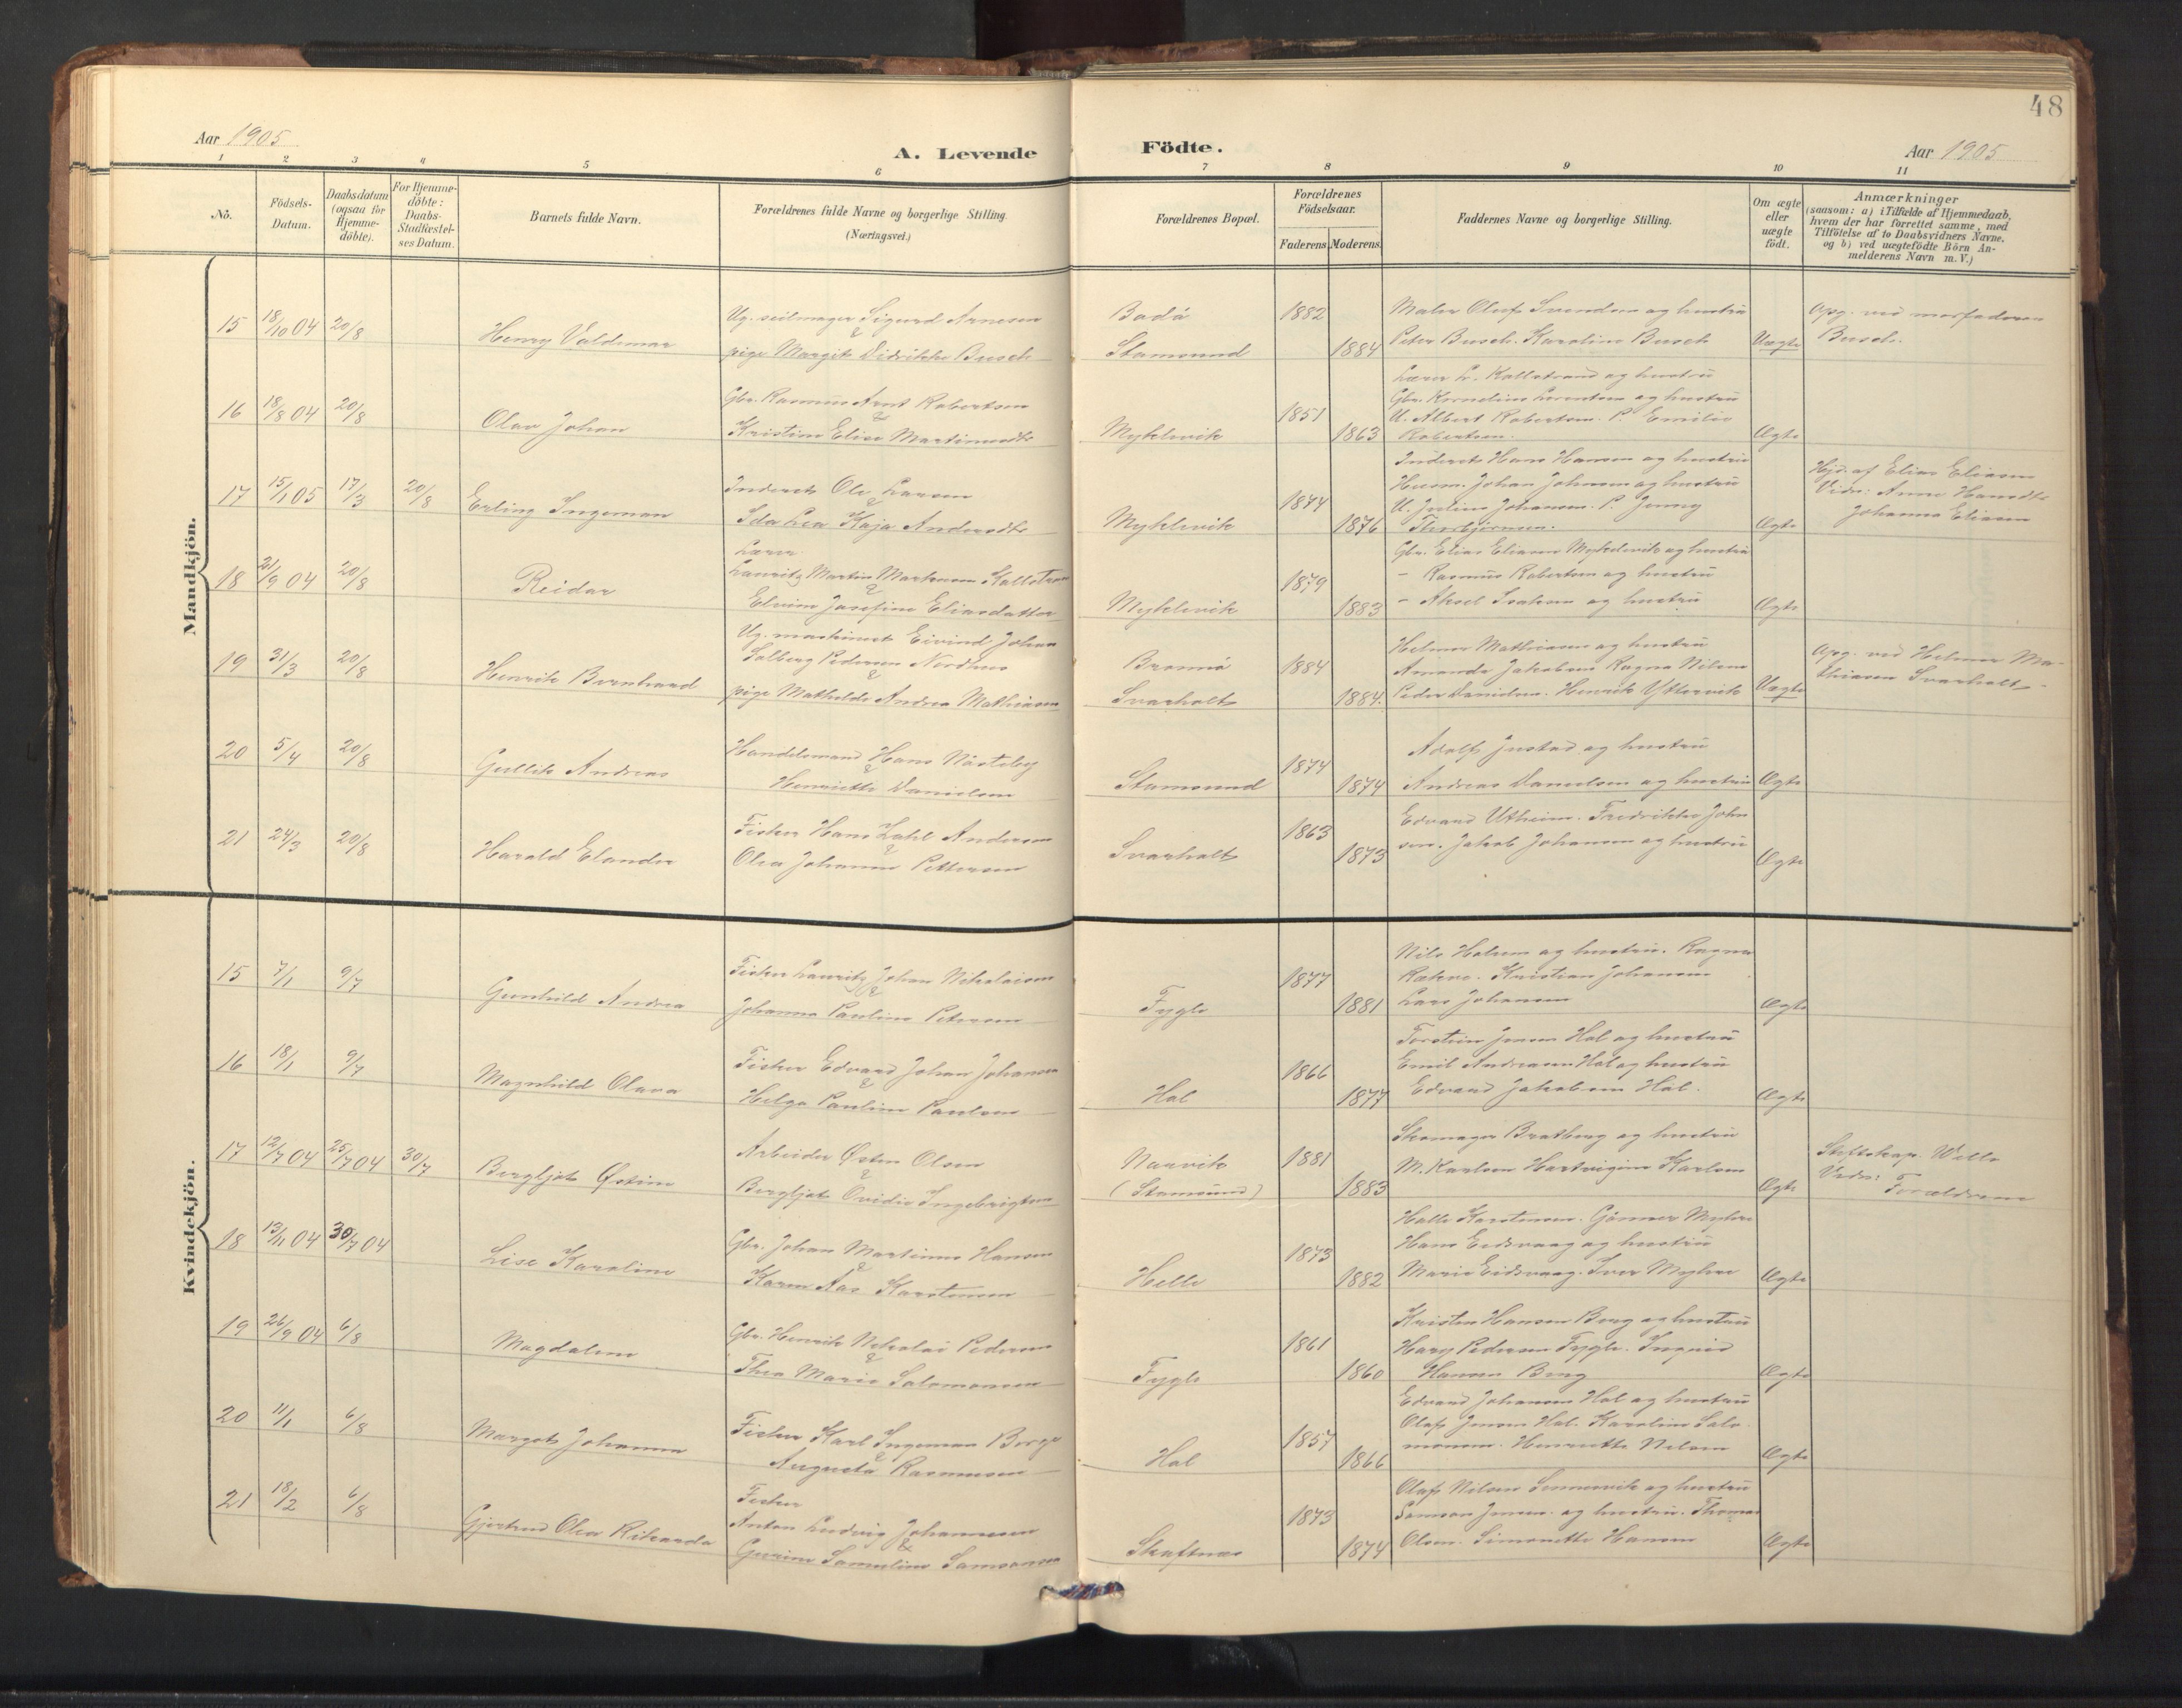 48
Aar 1905
A. Levende Födte.
Aar 1905
1 2 3 4 5 6 7 8 9 10 11
No.
Födsels-Datum.
Daabsdatum (ogsaa för Hjemme-döbte).
For Hjemme-döbte: Daabs-Stadfæstel-ses Datum.
Barnets fulde Navn.
Forældrenes fulde Navne og borgerlige Stilling.
(Næringsvei.)
Forældrenes Bopæl.
Forældrenes Födselsaar.
Faderens. Moderens.
Faddernes Navne og borgerlige Stilling.
Om ægte eller uægte födt.
Anmærkninger
(saasom: a) i Tilfælde af Hjemmedaab, hvem der har forrettet samme, med Tilföielse af to Daabsvidners Navne, og b) ved uægtefödte Börn An-melderens Navn m. V.)
Mandkjön.
15 18/10 04 20/8 Henry Valdemar
Ug. seilmager Sigurd Arnesen
&
pige Margit Didrikke Busch
Bodö
Stamsund
1882 1884
Maler Oluf Svendsen og hustru
Peter Busch. Karoline Busch
Uægte
Opg. ved morfaderen
Busch.
16 18/8 04 20/8 Olav Johan
Gbr. Rasmus Arnt Robertsen
&
Kristine Elise Martinsdtr
Myklevik
1851 1863
Lærer L. Kallestrand og hustru
Gbr. Kornelius Lorentsen og hustru
U. Albert Robertsen. P. Emilie
Robertsen.
Ægte
17 15/1 05 17/3 20/8 Erling Ingeman
Inderst Ole Larsen
&
Ida Lea Kaja Andersdtr
Myklevik
1874 1876
Inderst Hans Hansen og hustru
Husm. Johan Johnsen og hustru
U. Julius Johansen. P. Jenny
Thorbjørnsen.
Ægte
Hjd. af Elias Eliasen
Vidn: Anne Hansdtr
Johanna Eliasen
18 21/9 04 20/8 Reidar
Lærer
Lauritz Martin Markussen Kallestran
&
Elvine Josefine Eliasdatter
Myklevik
1879 1883
Gbr. Elias Eliasen Myklevik og hustru
- Rasmus Robertsen og hustru
- Aksel Isaksen og hustru
Ægte
19 31/3 20/8 Henrik Bernhard
Ug. maskinist Eivind Johan
Solberg Pedersen Nordhus
&
pige Mathilde Andrea Mathiasen
Bromnö
Svarholt
1884 1884.
Helmer Mathiasen og hustru
Amanda Jakobsen Ragna Nilsen
Peder Danielsen. Henrik Yttervik
Uægte
Opg. ved Helmer Ma-
thiasen Svarholt
20 5/4 20/8 Gullik Andreas
Handelsmand Hans Nösteby
&
Henriette Danielsen
Stamsund
1874 1874
Adolf Justad og hustru
Andreas Danielsen og hustru
Ægte
21 24/3 20/8 Harald Elander
Fisker Hans Zahl Andersen
&
Olea Johanna Pettersen
Svarholt
1863 1873
Edvard Utheim. Fredrikke John
sen. Jakob Johansen og hustru
Ægte
Kvindekjön.
15 7/1 9/7 Gunhild Andrea
Fisker Lauritz Johan Nikolaisen
&
Johanna Pauline Petersen
Fygle
1877 1881
Nils Halsen og hustru. Ragna
Kristian Johansen
Lars Johansen
Ægte
16 18/1 9/7 Magnhild Olava
Fisker Edvard Johan Johansen
&
Helga Pauline Paulsen
Hol
1866 1877
Torstein Jensen Hol og hustru
Emil Andreasen Hol og hustru
Edvard Jakobsen Hol.
Ægte
17 12/7 04 25/7 04 30/7 Bergljot Østine
Arbeider Østen Olsen
&
Bergljot Ovidie Ingebrigtsen
Narvik
(Stamsund)
1881 1883
Skomager Bratberg og hustru
M. Karlsen Hartvigine Karlsen
Ægte
Stiftskap. Welle
Vidn: Forældrene
18 13/11 04 30/7 04 Lise Karoline
Gbr. Johan Martinus Hansen
&
Karen Aas Karstensen
Helle
1873 1882
Halle Karstensen. Gunner Myhre
Hans Eidsvaag og hustru
Marie Eidsvaag. Iver Myhre
Ægte
19 26/9 04 6/8 Magdalene
Gbr. Henrik Nikolai Pedersen
&
Thea Marie Salomonsen
Fygle
1861 1860
Kristen Hansen Berg og hustru
Hary Pedersen Fygle. Ingrid
Hansen Berg
Ægte
20 11/1 6/8 Margot Johanna
Fisker Karl Ingeman Berge
&
Augusta Rasmussen
Hol
1857 1866
Edvard Johansen Hol og hustru
Olaf Jensen Hol. Karoline Salo-
monsen. Henriette Nilsen
Ægte
21 18/2 6/8 Gjertrud Olea Rikarda
Fisker
Anton Ludvig Johannesen
&
Gurine Samuline Samsonsen
Skaftnes
1873 1874
Olaf Nilsen Sennesvik og hustru
Samson Jensen og hustru. Thomas
Olsen. Simonette Hansen
Ægte